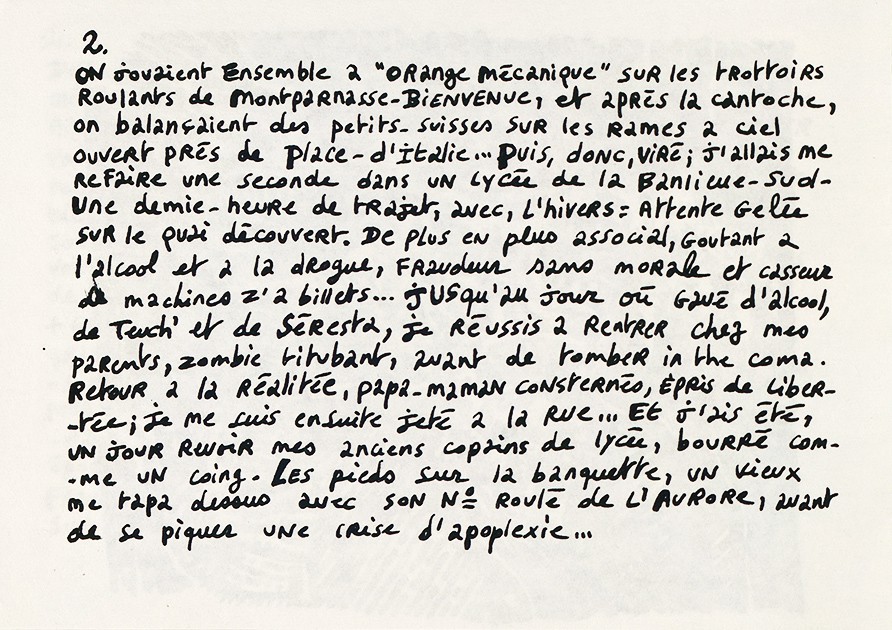 2.
ON jouaient Ensemble a "ORange mécanique" SUR les tRottoiRs
Roulants de Montparnasse-BiENVENUE, et apRÈs la cantoche,
on balançaient des petits-suisses SUR les Rames a ciel
ouveRt pRÈs de place-d'Italie... Puis, donc, ViRé; j'allais me
ReFaiRe une seconde dans UN Lycée de la Banlieue-Sud-
Une demie-heuRe de tRajet, avec, L'hiveRs = Attente Gelée
SUR le quai découveRt. De plus en plus associal, Goutant a
l'alcool et a la drogue, FRaudeur sans moRale et casseur
de machines z'a billets... jUSqu'au jour où Gavé d'alcool,
de Teuch' et de SéResta, je Réussis a RentReR chez mes
paRents, zombie titubant, avant de tombeR in the coma.
RetouR a la Réalitée, papa-maman consteRnés, épRis de LibeR-
-tée; je me suis ensuite jeté a la Rue... Et j'ais été,
UN jouR RevoiR mes anciens copains de lycée, bouRRé com-
-me UN coing. LEs pieds sur la banquette, UN vieux
me tapa dessus avec SON Nº Roulé de L'AuRoRe, avant
de se piquer UNE CRise d'apoplexie...